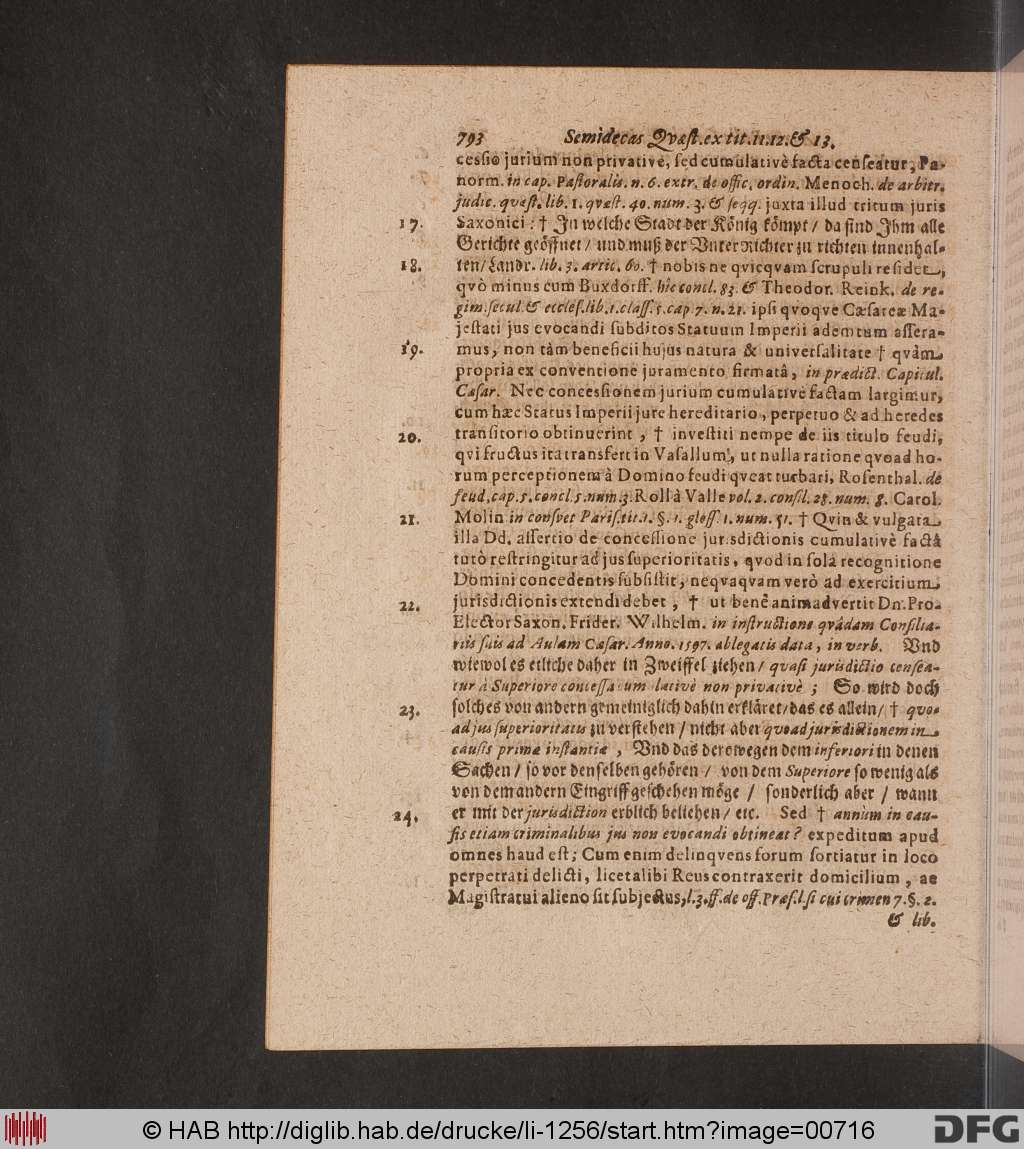 793 Semidecas Qvæst. ex tit. 11. 12. & 13.
cessio jurium non privativè, sed cumulativè facta censeatur, Pa-
norm. in cap. Pastoralis. n. 6. extr. de offic. ordin. Menoch. de arbitr.
judic. quæst. lib. 1. quæst. 40. num. 3. & seqq. juxta illud tritum juris
17. Saxonici: † In welche Stadt der König kömpt / da sind Ihm alle
Gerichte geöffnet / und muß der UnterRichter zu richten innenhal-
18. ten / Landr. lib. 3. artic. 60. † nobis ne qvicqvam scrupuli residet,
qvò minus cum Buxdorff. hîc concl. 83. & Theodor. Reink. de re-
gim. secul. & eccles. lib. 1. class. 5. cap. 7. n. 21. ipsi qvoqve Cæsareæ Ma-
jestati jus evocandi subditos Statuum Imperii ademtum assera-
19. mus, non tàm beneficii hujus natura & universalitate † qvàm
propria ex conventione juramento firmatâ, in prædict. Capitul.
Cæsar. Nec concessionem jurium cumulativè factam largimur,
cum hæc Status Imperii jure hereditario, perpetuo & ad heredes
20. transitorio obtinuerint, † investiti nempe de iis titulo feudi,
qvi fructus ita transfert in Vasallum, ut nulla ratione qvoad ho-
rum perceptionem à Domino feudi qveat turbari, Rosenthal. de
feud. cap. 5. concl. 5. num. 3. Roll à Valle vol. 2. consil. 28. num. 8. Carol.
21. Molin in consvet Paris. tit. 1. §. 1. gloss. 1. num. 51. † Qvin & vulgata
illa Dd. assertio de concessione jurisdictionis cumulativè factâ
tutò restringitur ad jus superioritatis, qvod in solâ recognitione
Domini concedentis subsistit, neqvaqvam verò ad exercitium
22. jurisdictionis extendi debet, † ut benè animadvertit Dn. Pro-
Elector Saxon. Frider. Wilhelm. in instructione qvâdam Consilia-
riis suis ad Aulam Cæsar. Anno. 1597. ablegatis data, in verb. Und
wiewol es etliche daher in Zweiffel ziehen / quasi jurisdictio censea-
tur à Superiore concessa cumulativè non privativè; So wird doch
23. solches von andern gemeiniglich dahin erkläret / das es allein / † quo-
ad jus superioritatis zu verstehen / nicht aber quoad jurisdictionem in
causis primæ instantiæ, Und das derowegen dem inferiori in denen
Sachen / so vor denselben gehören / von dem Superiore so wenig als
von dem andern Eingriff geschehen möge / sonderlich aber / wann
24. er mit der jurisdiction erblich beliehen / etc. Sed † annùm in cau-
sis etiam criminalibus jus non evocandi obtineat? expeditum apud
omnes haud est; Cum enim delinqvens forum sortiatur in loco
perpetrati delicti, licet alibi Reus contraxerit domicilium, ac
Magistratui alieno sit subjectus, l. 3. ff. de off. Præs. l. si cui crimen 7. §. 2.
& lib.
© HAB http://diglib.hab.de/drucke/li-1256/start.htm?image=00716
DFG